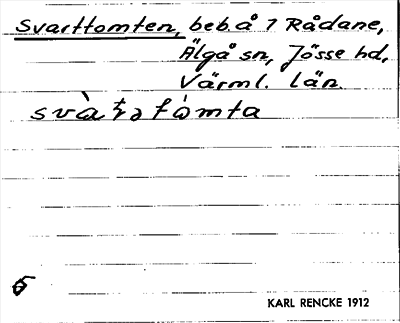 Svarttomten, beb. å 7 Rådane,
Älgå sn, Jösse hd,
Värml. län.
KARL RENCKE 1912